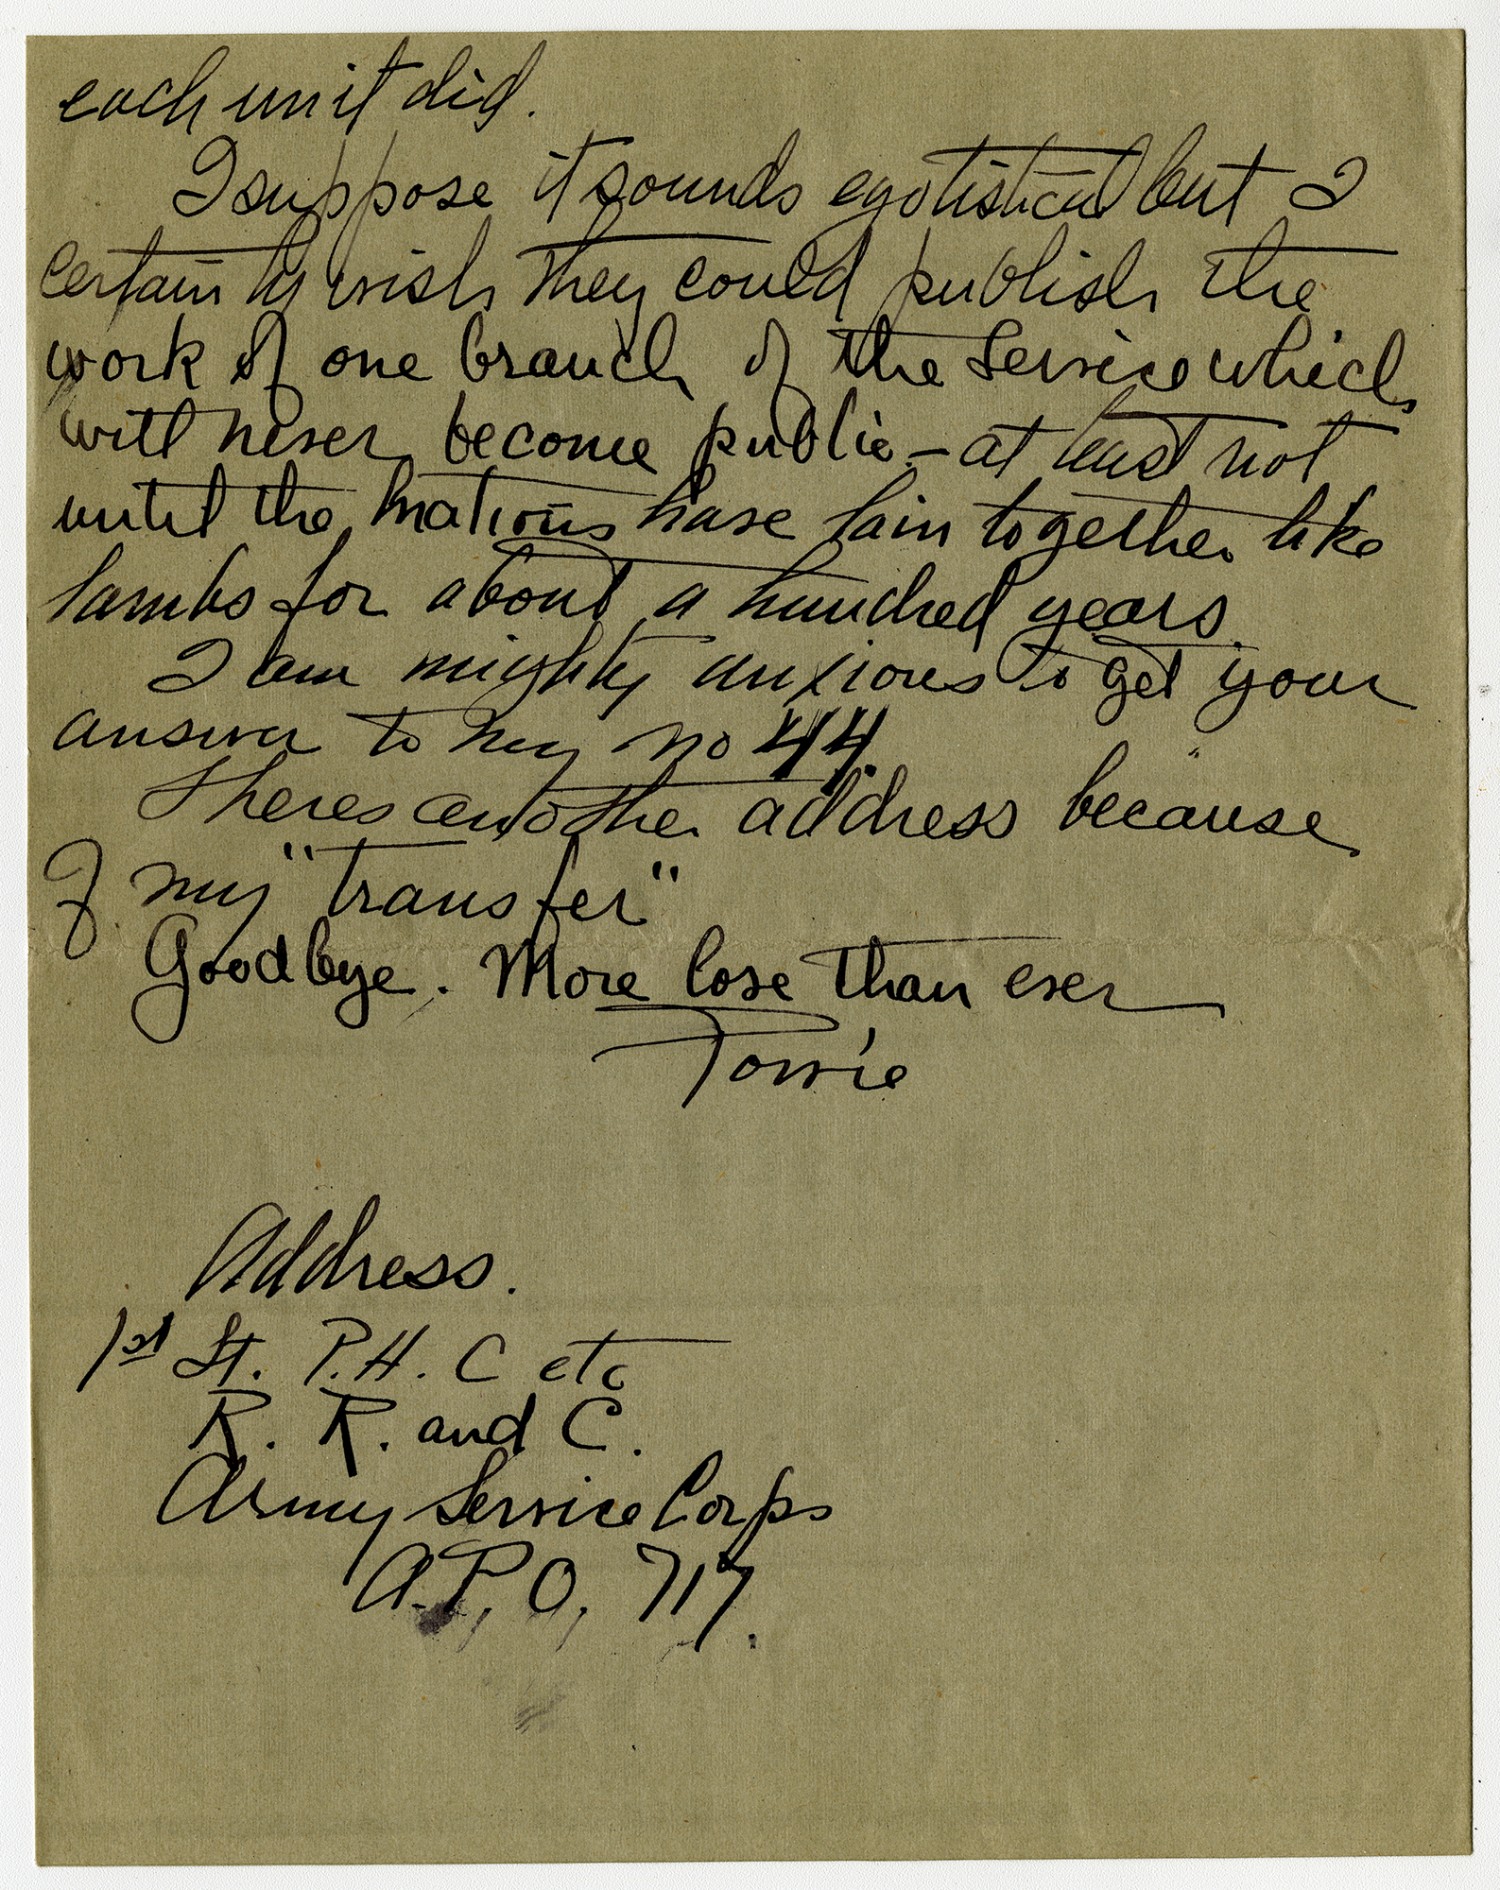 each unit did.
I suppose it sounds egotistical but I
certainly wish they could publish the
work of one branch of the Service which
will never become public – at least not
until the nations have lain together like
lambs for about a hundred years.
I am mighty anxious to get your
answer to my no 44.
Theres another address because
of my "transfer"
Goodbye. More love than ever
Address.
1st Lt. P. H. C etc
R. R. and C.
Army Service Corps
A. P. O. 717.